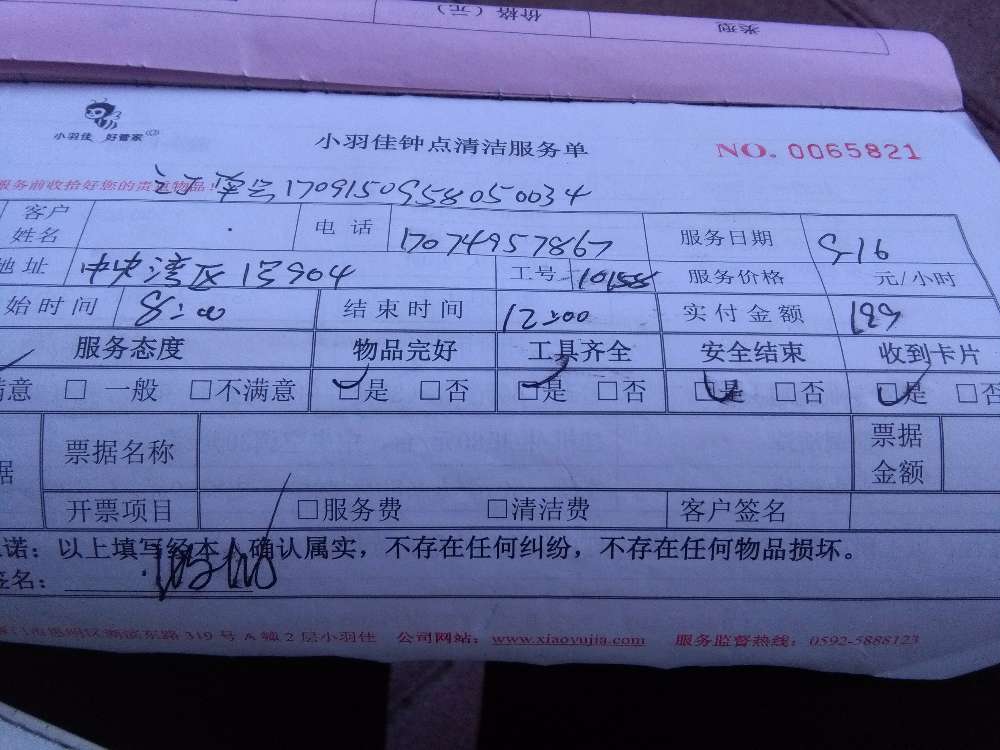 价格（元） 类型
小羽佳 好管家
小羽佳钟点清洁服务单 NO. 0065821
服务前收拾好您的贵重物品！
订单号170915095805 0034
客户姓名 电话 17074957867 服务日期 9-16
地址 中央湾区 904 工号 服务价格 元/小时
始时间 8:00 结束时间 12:00 实付金额
服务态度 物品完好 工具齐全 安全结束 收到卡片
满意 □ 一般 □不满意 □是 □否 □是 □否 □是 □否 □是 □否
据 票据名称 票据金额
开票项目 □服务费 □清洁费 客户签名
诺：以上填写经本人确认属实，不存在任何纠纷，不存在任何物品损坏。
签名：
门市思明区湖滨东路 319 号 A 幢 2 层小羽佳 公司网站：www.xiaoyujia.com 服务监督热线：0592-5888123